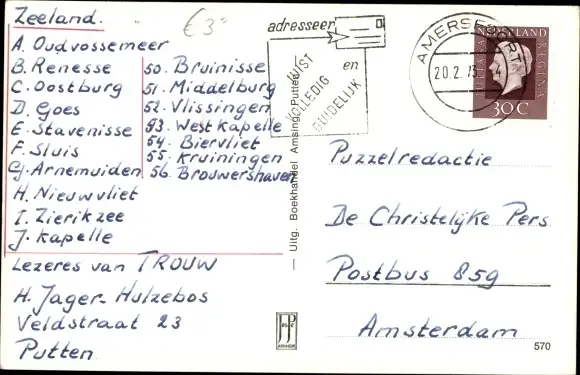 Zeeland.
€3
A. Oudvossemeer
B. Renesse
C. Oostburg
D. Goes
E. Stavenisse
F. Sluis
G. Arnemuiden
H. Nieuwvliet
I. Zierikzee
J. Kapelle
50. Bruinisse
51. Middelburg
52. Vlissingen
53. Westkapelle
54. Biervliet
55. Kruiningen
56. Brouwershaven
Lezeres van TROUW
H. Jager-Hulzebos
Veldstraat 23
Putten
— Uitg. Boekhandel Amsing, Putten
adresseer
JUIST
VOLLEDIG
en
DUIDELIJK
AMERSFOORT
20.2.73
NEDERLAND
JULIANA
REGINA
30 C
Puzzelredactie
De Christelijke Pers
Postbus 859
Amsterdam
JP
ARNHEM
570